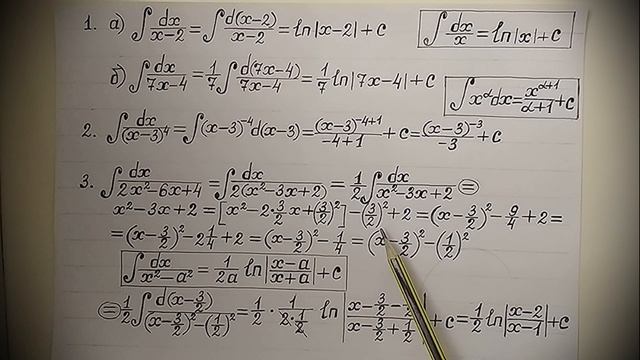 1. а) ∫dx/(x-2) = ∫d(x-2)/(x-2) = ln|x-2|+c
∫dx/x = ln|x|+c
б) ∫dx/(7x-4) = 1/7 ∫d(7x-4)/(7x-4) = 1/7 ln|7x-4|+c
∫x^α dx = x^(α+1)/(α+1) + c
2. ∫dx/(x-3)^4 = ∫(x-3)^(-4) d(x-3) = (x-3)^(-4+1)/(-4+1) + c = (x-3)^(-3)/(-3) + c
3. ∫dx/(2x²-6x+4) = ∫dx/(2(x²-3x+2)) = 1/2 ∫dx/(x²-3x+2) ⊜
x²-3x+2 = [x²-2·3/2 x+(3/2)²]-(3/2)²+2 = (x-3/2)²-9/4+2 =
= (x-3/2)²-2 1/4+2 = (x-3/2)²-1/4 = (x-3/2)²-(1/2)²
∫dx/(x²-a²) = 1/(2a) ln|(x-a)/(x+a)|+c
⊜ 1/2 ∫d(x-3/2)/((x-3/2)²-(1/2)²) = 1/2 · 1/(2·1/2) ln|(x-3/2-1/2)/(x-3/2+1/2)|+c = 1/2 ln|(x-2)/(x-1)|+c